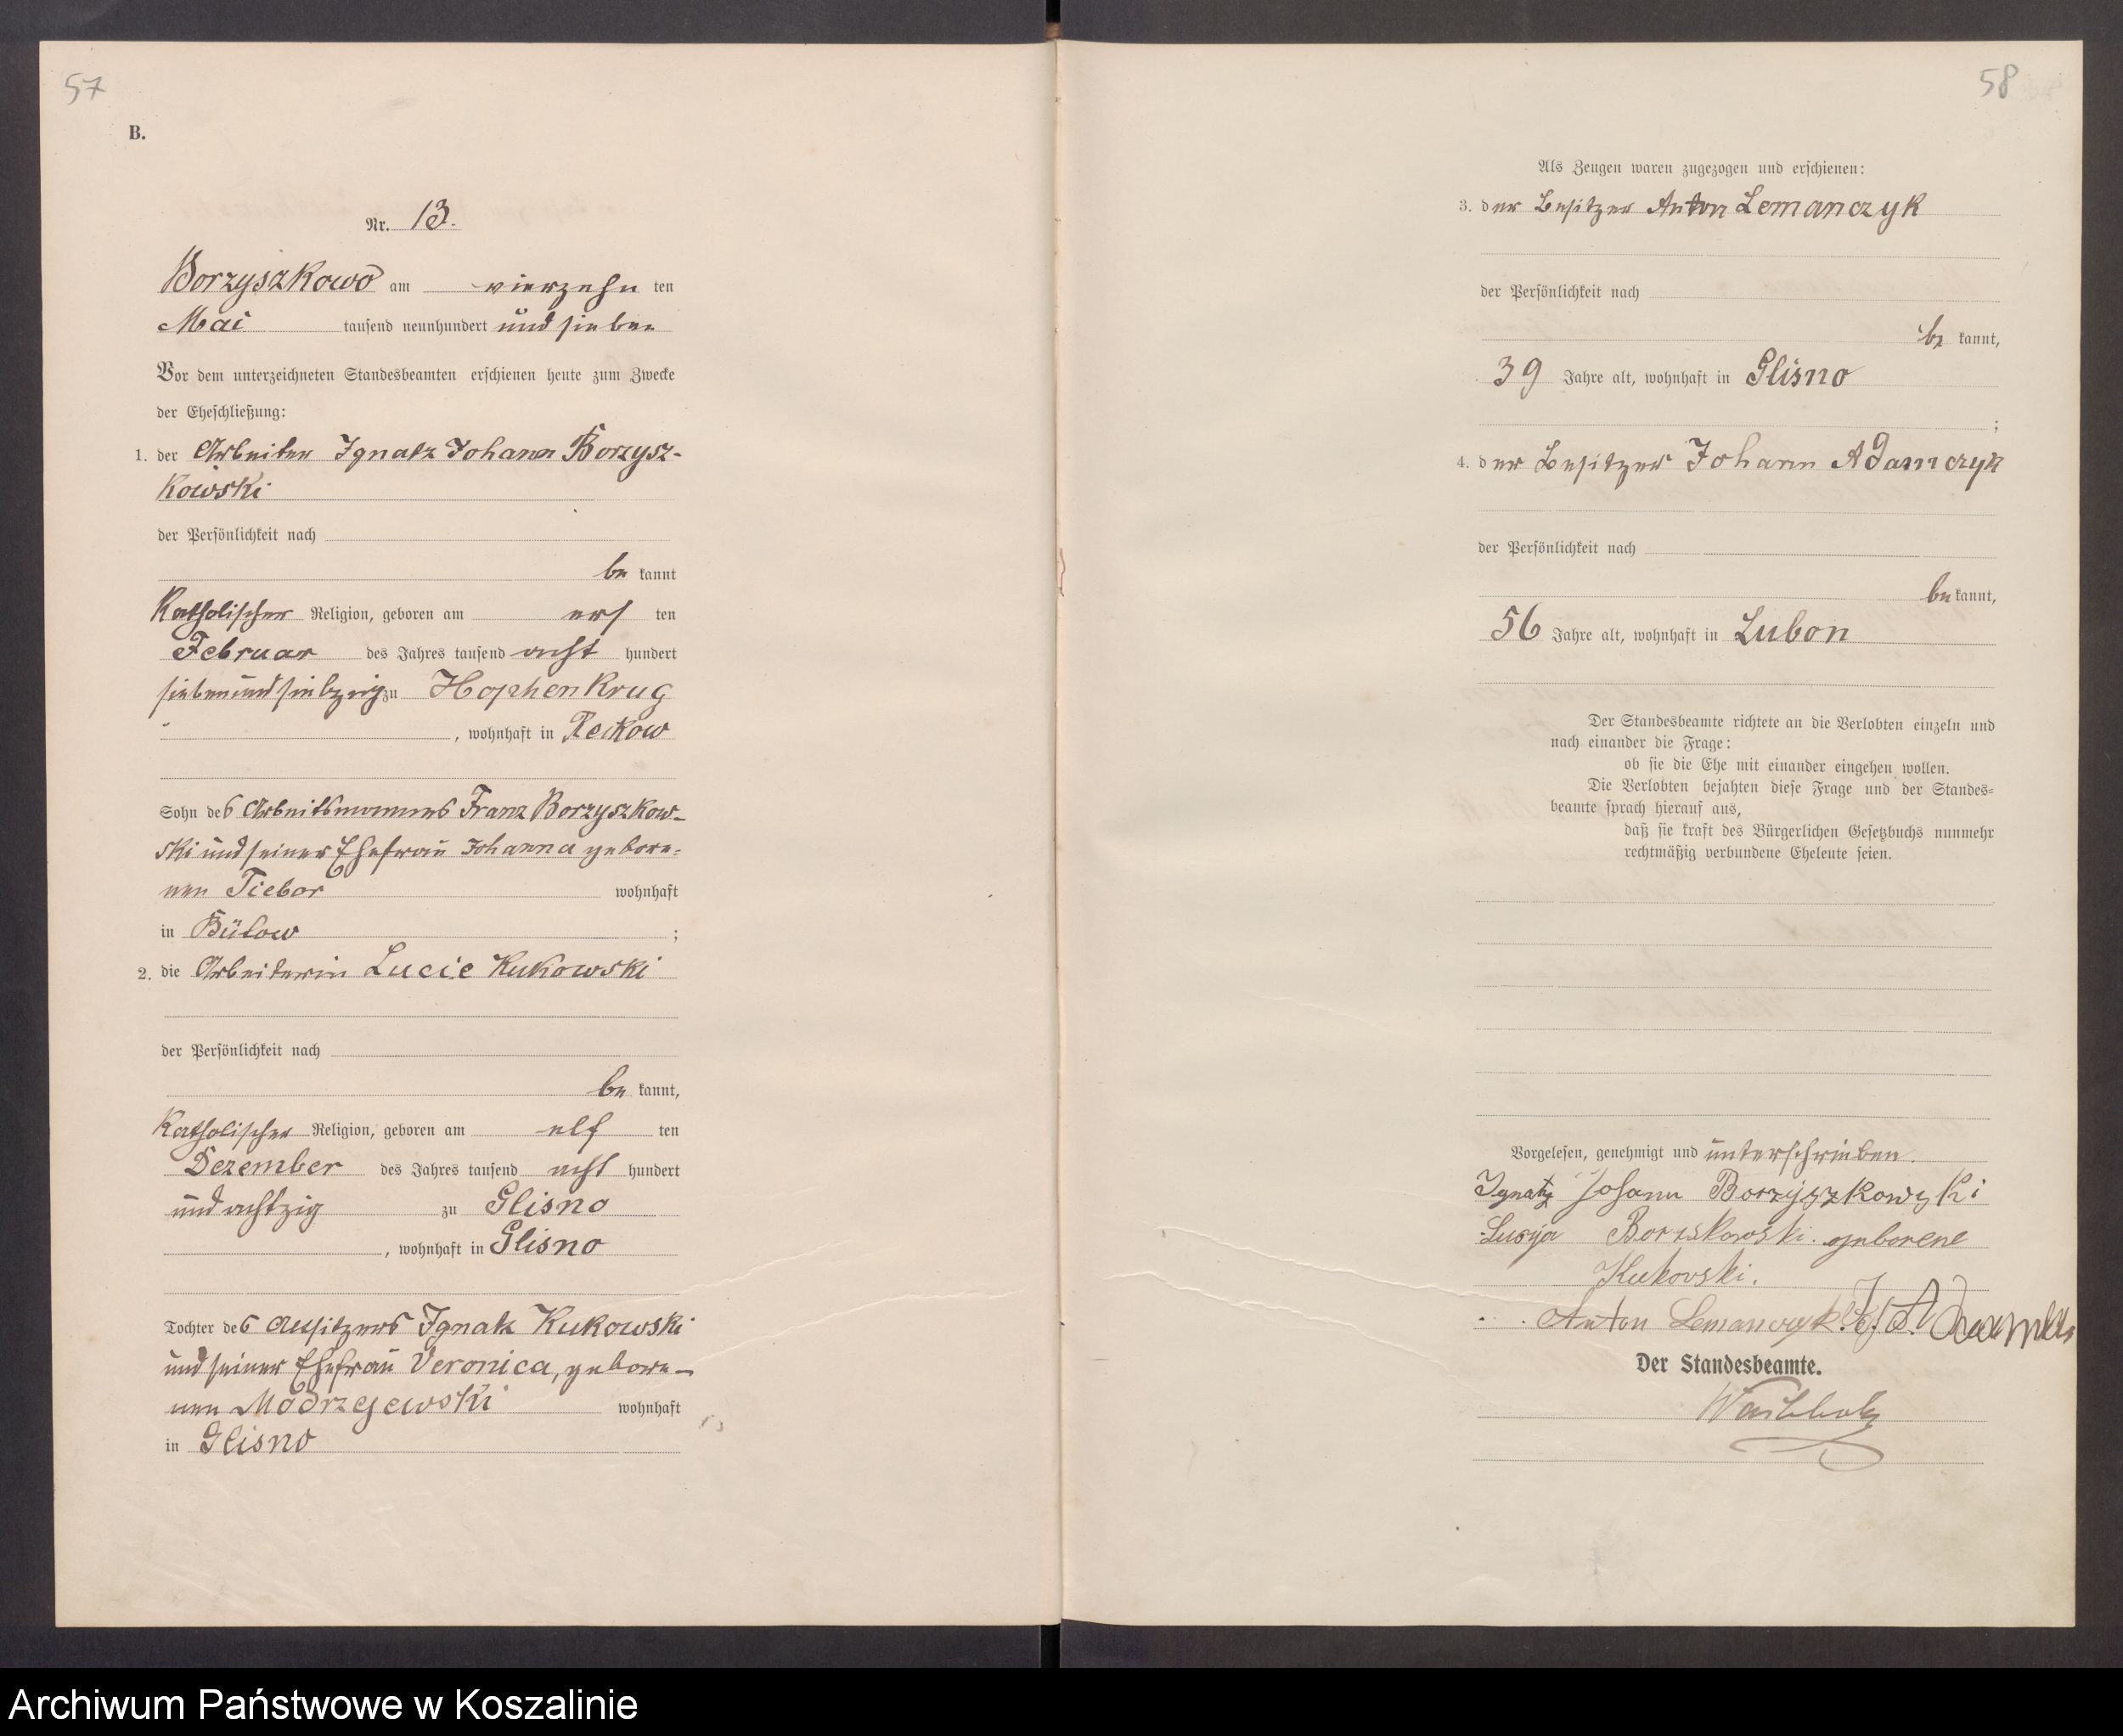 57
B.
Nr. 13.
Borzyszkowo am vierzehn ten
Mai tausend neunhundert und sieben
Vor dem unterzeichneten Standesbeamten erschienen heute zum Zwecke
der Eheschließung:
1. der Arbeiter Ignatz Johann Borzysz-
kowski
der Persönlichkeit nach
be kannt
Katholischer Religion, geboren am ers ten
Februar des Jahres tausend acht hundert
siebenundsiebzig zu Hophenkrug
, wohnhaft in Reckow
Sohn des Arbeitsmannes Franz Borzyszkow-
ski und seiner Ehefrau Johanna gebore-
nen Tiebor wohnhaft
in Bütow ;
2. die Arbeiterin Lucie Kukowski
der Persönlichkeit nach
be kannt,
Katholischer Religion, geboren am elf ten
Dezember des Jahres tausend acht hundert
und achtzig zu Glisno
, wohnhaft in Glisno
Tochter des Ansitzers Ignatz Kukowski
und seiner Ehefrau Veronica, gebore-
nen Modrzejewski wohnhaft
in Glisno
58
Als Zeugen waren zugezogen und erschienen:
3. der Besitzer Anton Lemanczyk
der Persönlichkeit nach
be kannt,
39 Jahre alt, wohnhaft in Glisno
;
4. der Besitzer Johann Adamczyk
der Persönlichkeit nach
be kannt,
56 Jahre alt, wohnhaft in Lubon
Der Standesbeamte richtete an die Verlobten einzeln und
nach einander die Frage:
ob sie die Ehe mit einander eingehen wollen.
Die Verlobten bejahten diese Frage und der Standes-
beamte sprach hierauf aus,
daß sie kraft des Bürgerlichen Gesetzbuchs nunmehr
rechtmäßig verbundene Eheleute seien.
Vorgelesen, genehmigt und unterschrieben.
Ignatz Johann Borzyszkowski
Lusya Borzskowski geborene
Kukovski.
Anton Lemanczyk.
Der Standesbeamte.
Archiwum Państwowe w Koszalinie